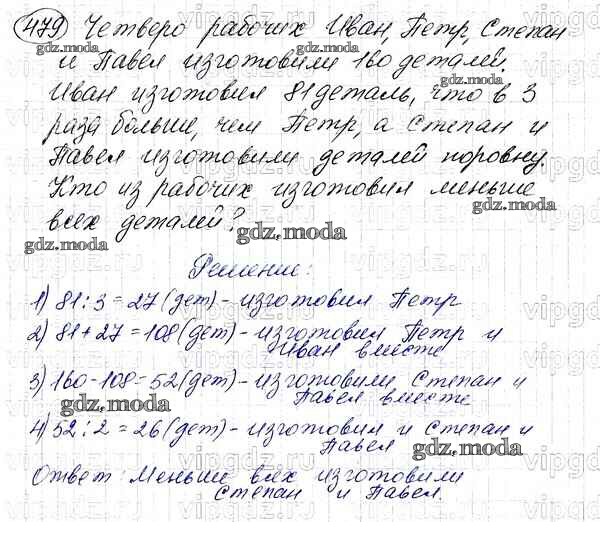 479 Четверо рабочих Иван, Петр, Степан
и Павел изготовили 160 деталей.
Иван изготовил 81 деталь, что в 3
раза больше, чем Петр, а Степан и
Павел изготовили деталей поровну.
Кто из рабочих изготовил меньше
всех деталей?
Решение:
1) 81 : 3 = 27 (дет) - изготовил Петр
2) 81 + 27 = 108 (дет) - изготовили Петр и
Иван вместе
3) 160 - 108 = 52 (дет) - изготовили Степан и
Павел вместе
4) 52 : 2 = 26 (дет) - изготовили и Степан и
Павел
Ответ: Меньше всех изготовили
Степан и Павел.
gdz.moda
gdz.moda
gdz.moda
gdz.moda
gdz.moda
gdz.moda
gdz.moda
gdz.moda
gdz.moda
gdz.moda
vipgdz.ru